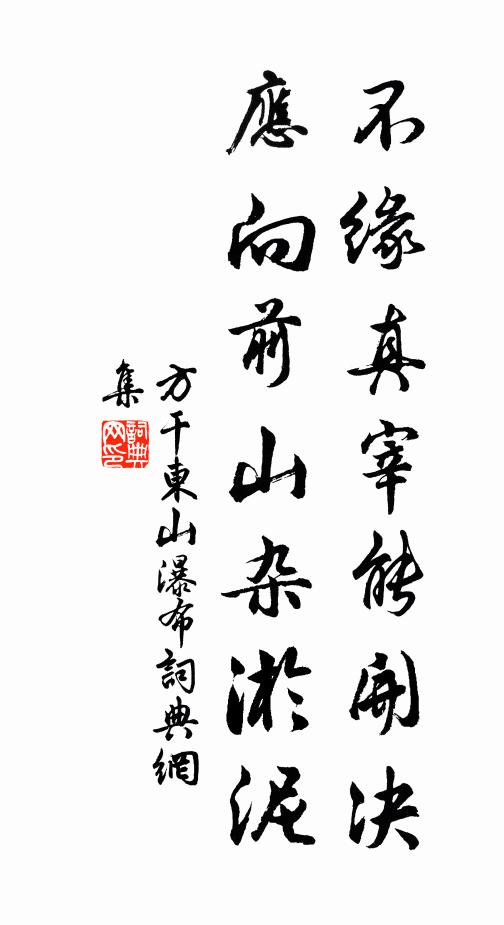 不缘真宰能開决
應向前山杂淤泥
方干東山瀑布詞典網
集
詞典网印